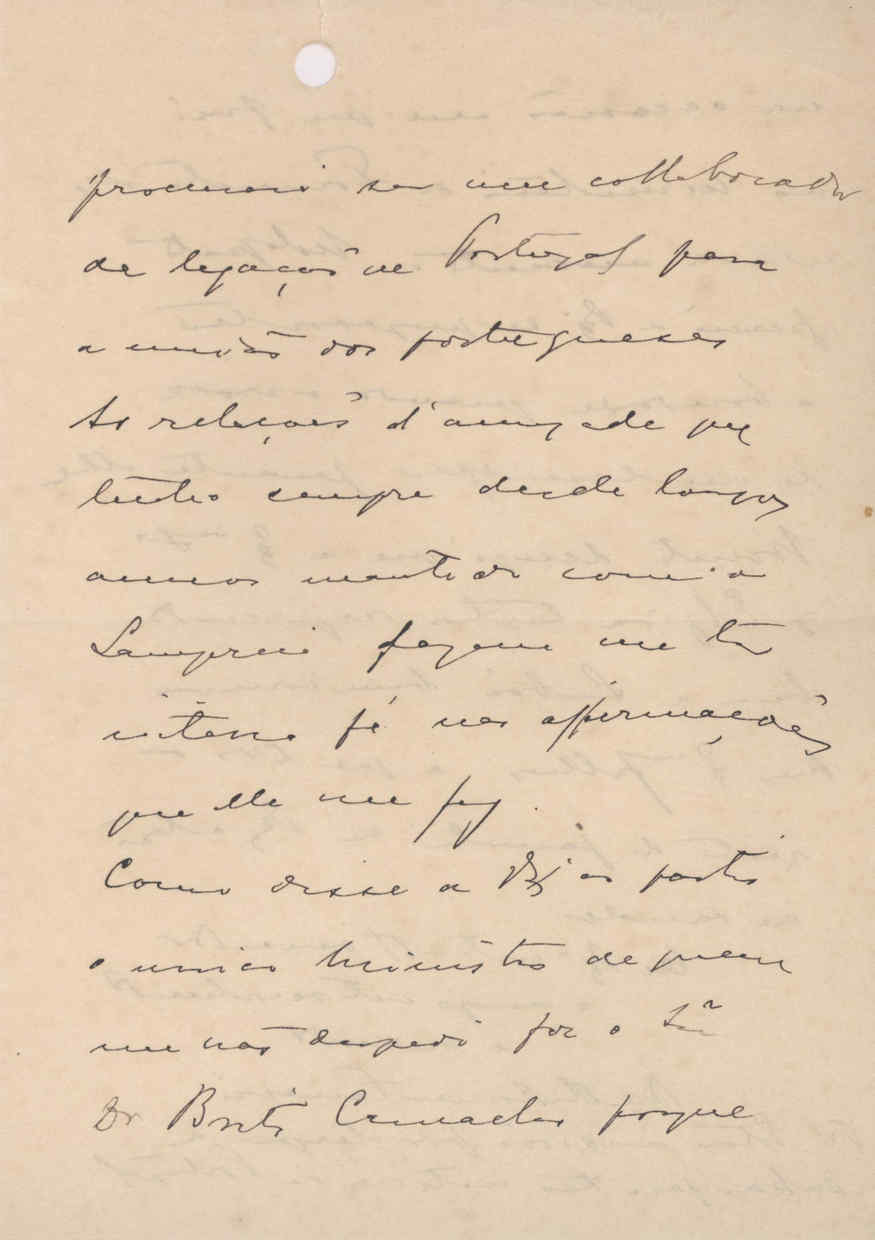 procurarei ser um collaborador
da legação de Portugal para
a união dos portuguezes
As relações d'amizade que
tenho sempre desde longos
annos mantido com o
Lampreia fazem me ter
inteira fé nas affirmações
que elle me fez.
Como disse a V. Ex. ao partir
o unico Ministro de quem
me não despedi foi o Snr
Dr Brito Camacho porque